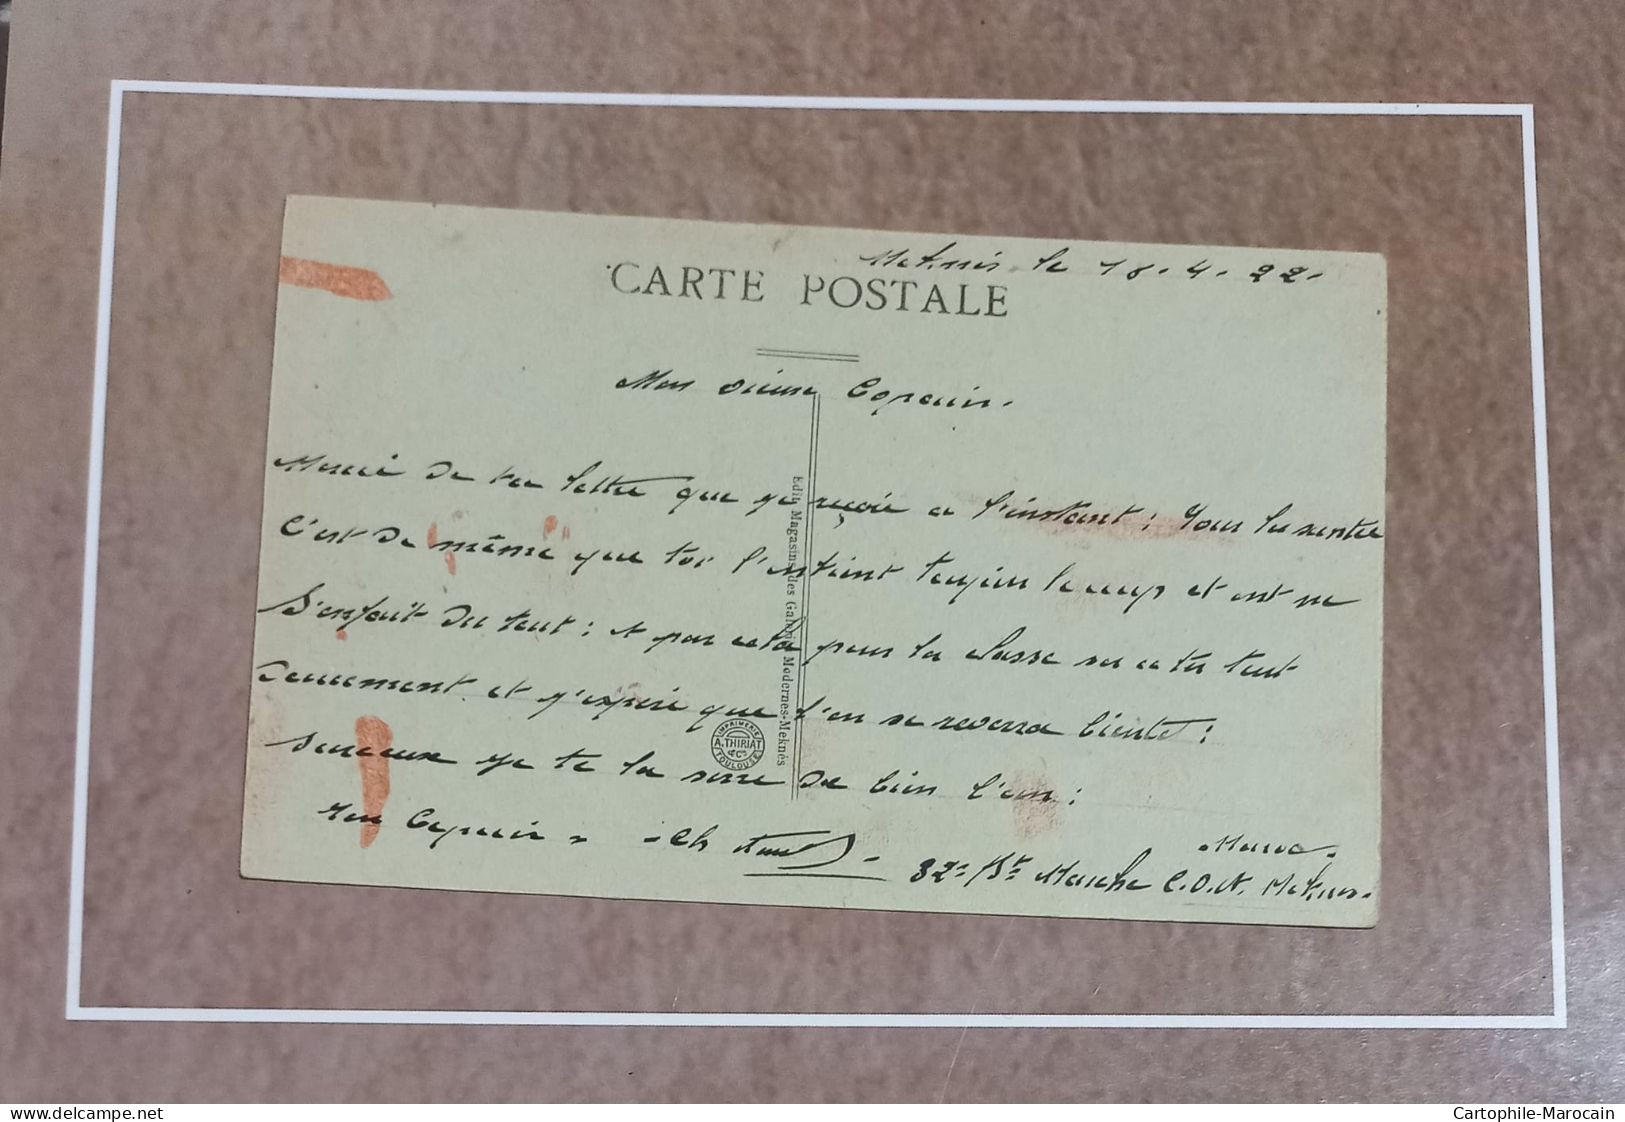 Meknès le 18.4.22.
CARTE POSTALE
Mon vieux Copain.
Merci de ta lettre que je reçoie a l'instant : Pour la rentée
C'est de même que toi l'entient toujour le coup et ont ne
S'enfait du tout : A par cela pour la classe sa cetir tout
doucement et j'espére que l'on se reverra bientot ;
je te la serre de bien loin :
Ton Copain - Ch
Maroc.
32e Bt Marche C.O.A. Meknes.
Edit. Magasins des Galeries Modernes-Meknès
IMPRIMERIE
A. THIRIAT
& Cie
TOULOUSE
delcampe.net
Cartophile-Marocain